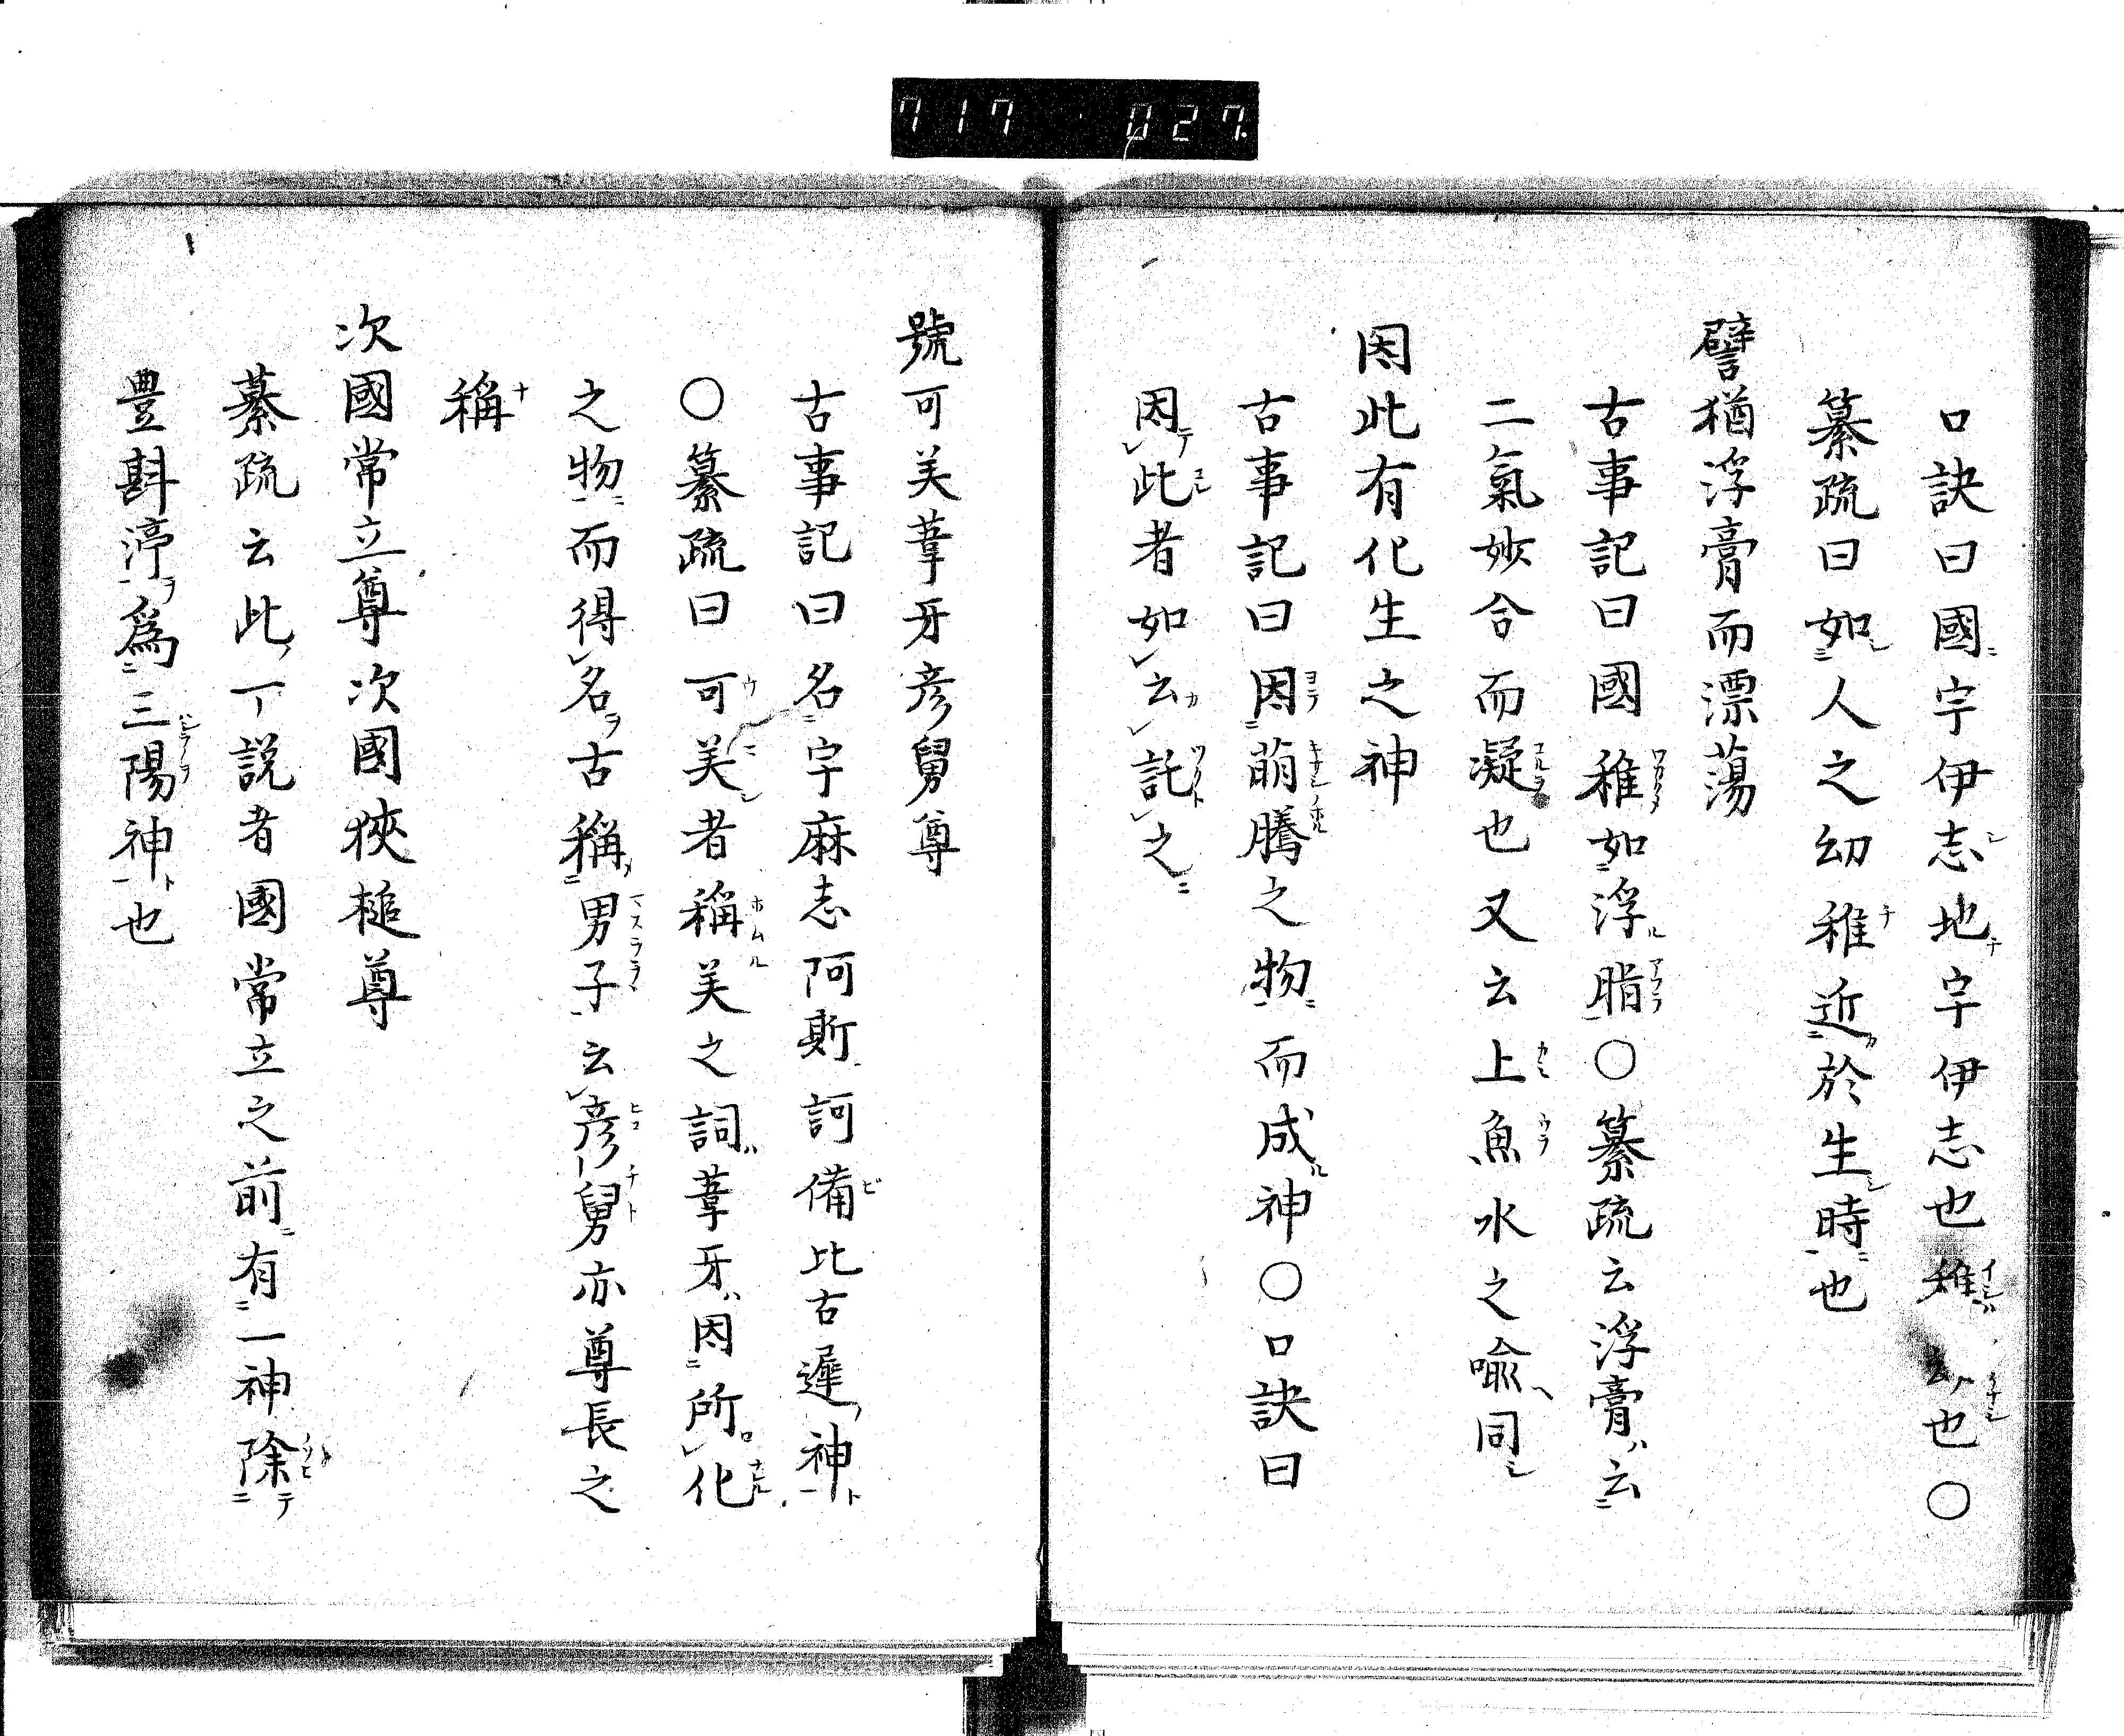 717 027
口訣曰國宇伊志地宇伊志也稚云也〇
纂疏曰如人之幼稚近於生時也
譬猶浮膏而漂蕩
古事記曰國稚如浮脂〇纂疏云浮膏云
二氣妙合而凝也又云上魚水之喩同
因此有化生之神
古事記曰因萌騰之物而成神〇口訣曰
因此者如云託之
號可美葦牙彦舅尊
古事記曰名宇麻志阿斯訶備比古遲神
〇纂疏曰可美者稱美之詞葦牙因所化
之物而得名古稱男子云彦舅亦尊長之
稱
次國常立尊次國狹槌尊
纂疏云此一説者國常立之前有一神除
豊斟渟爲三陽神也